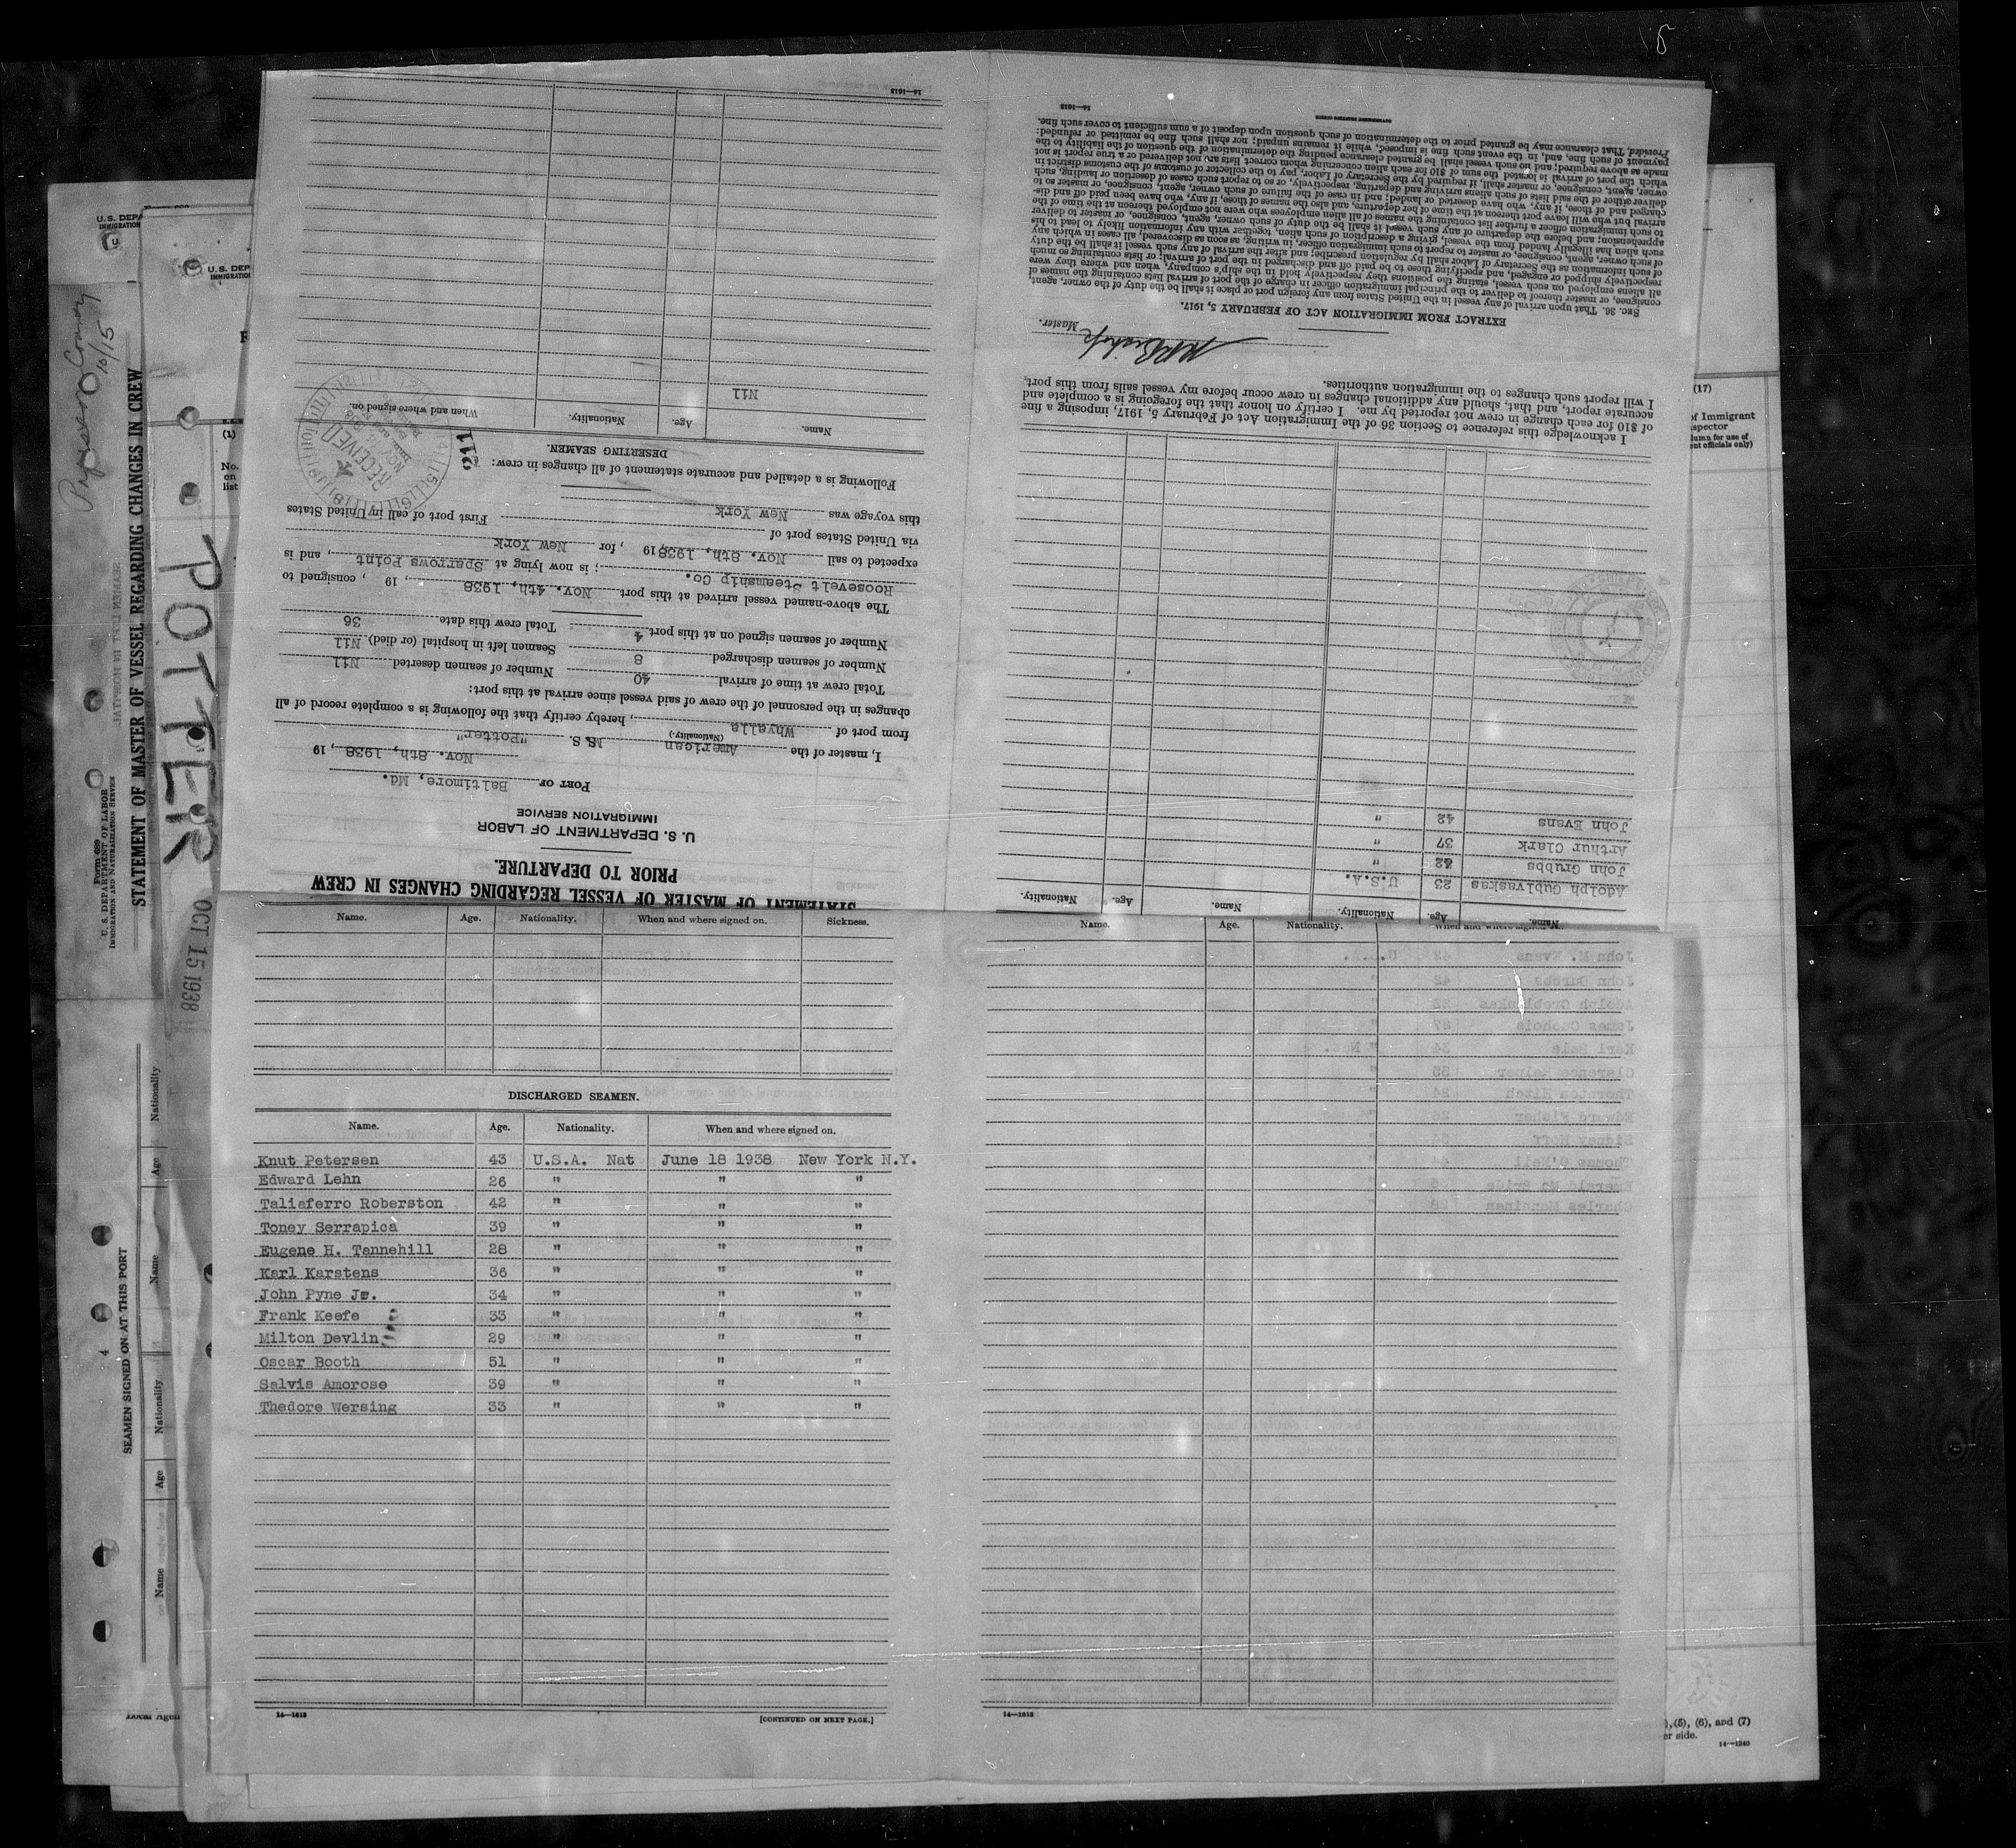 STATEMENT OF MASTER OF VESSEL REGARDING CHANGES IN CREW
PRIOR TO DEPARTURE.
U. S. DEPARTMENT OF LABOR
IMMIGRATION SERVICE
PORT OF Baltimore, Md.
Nov. 8th, 1938, 19
I, master of the American M.S. S. "Potter"
(Nationality.)
from port of Whyalla, hereby certify that the following is a complete record of all
changes in the personnel of the crew of said vessel since arrival at this port:
Total crew at time of arrival 40 Number of seamen deserted Nil
Number of seamen discharged 8 Seamen left in hospital (or died) Nil
Number of seamen signed on at this port 4 Total crew this date 36
The above-named vessel arrived at this port Nov. 4th, 1938, 19 , consigned to
Roosevelt Steamship Co. ; is now lying at Sparrows Point, and is
expected to sail Nov. 8th, 1938, 19 , for New York
via United States port of
this voyage was New York First port of call in United States
Following is a detailed and accurate statement of all changes in crew:
211
RECEIVED
DESERTING SEAMEN.
Name. Age. Nationality. When and where signed on.
Nil
14—1613
Name. Age. Nationality. Name. Age. Nationality.
Adolph Gubivaskas 23 U.S.A.
John Grubbs 42 "
Arthur Clark 37 "
John Evans 42 "
I acknowledge this reference to Section 36 of the Immigration Act of February 5, 1917, imposing a fine
of $10 for each change in crew not reported by me. I certify on honor that the foregoing is a complete and
accurate report, and that, should any additional changes in crew occur before my vessel sails from this port,
I will report such changes to the immigration authorities.
Master.
EXTRACT FROM IMMIGRATION ACT OF FEBRUARY 5, 1917.
SEC. 36. That upon arrival of any vessel in the United States from any foreign port or place it shall be the duty of the owner, agent,
consignee, or master thereof to deliver to the principal immigration officer in charge of the port of arrival lists containing the names of
all aliens employed on such vessel, stating the positions they respectively hold in the ship's company, when and where they were
respectively shipped or engaged, and specifying those to be paid off and discharged in the port of arrival; or lists containing so much
of such information as the Secretary of Labor shall by regulation prescribe; and after the arrival of any such vessel it shall be the duty
of such owner, agent, consignee, or master to report to such immigration officer, in writing, as soon as discovered, all cases in which any
such alien has illegally landed from the vessel, giving a description of such alien, together with any information likely to lead to his
apprehension; and before the departure of any such vessel it shall be the duty of such owner, agent, consignee, or master to deliver
to such immigration officer a further list containing the names of all alien employees who were not employed thereon at the time of the
arrival but who will leave port thereon at the time of her departure, and also the names of those, if any, who have been paid off and dis-
charged and of those, if any, who have deserted or landed; and in case of the failure of such owner, agent, consignee, or master so to
deliver either of the said lists of such aliens arriving and departing, respectively, or so to report such cases of desertion or landing, such
owner, agent, consignee, or master shall, if required by the Secretary of Labor, pay to the collector of customs of the customs district in
which the port of arrival is located the sum of $10 for each alien concerning whom correct lists are not delivered or a true report is not
made as above required; and no such vessel shall be granted clearance pending the determination of the question of the liability to the
payment of such fine, and, in the event such fine is imposed, while it remains unpaid; nor shall such fine be remitted or refunded:
Provided, That clearance may be granted prior to the determination of such question upon deposit of a sum sufficient to cover such fine.
14—1613
Name. Age. Nationality. When and where signed on. Sickness.
DISCHARGED SEAMEN.
Name. Age. Nationality. When and where signed on.
Knut Petersen 43 U.S.A. Nat June 18 1938 New York N.Y.
Edward Lehn 26 " " "
Taliaferro Roberston 42 " " "
Toney Serrapica 39 " " "
Eugene H. Tannehill 28 " " "
Karl Karstens 36 " " "
John Pyne Jr. 34 " " "
Frank Keefe 33 " " "
Milton Devlin 29 " " "
Oscar Booth 51 " " "
Salvis Amorose 39 " " "
Thedore Wersing 33 " " "
14—1613
[CONTINUED ON NEXT PAGE.]
Name. Age. Nationality. When and where signed on.
14—1613
Form 689
U. S. DEPARTMENT OF LABOR
IMMIGRATION AND NATURALIZATION SERVICE
STATEMENT OF MASTER OF VESSEL REGARDING CHANGES IN CREW
10/15
SEAMEN SIGNED ON AT THIS PORT
4
Name Age Nationality Name Age Nationality
POTTER
OCT 15 1938
U. S. DEPA
IMMIGRATION
U. S. DEP
IMMIGRATIO
(1)
No.
on
list
(17)
of Immigrant
spector
lumn for use of
ent officials only)
Local Agen
),(5), (6), and (7)
er side.
14—1240